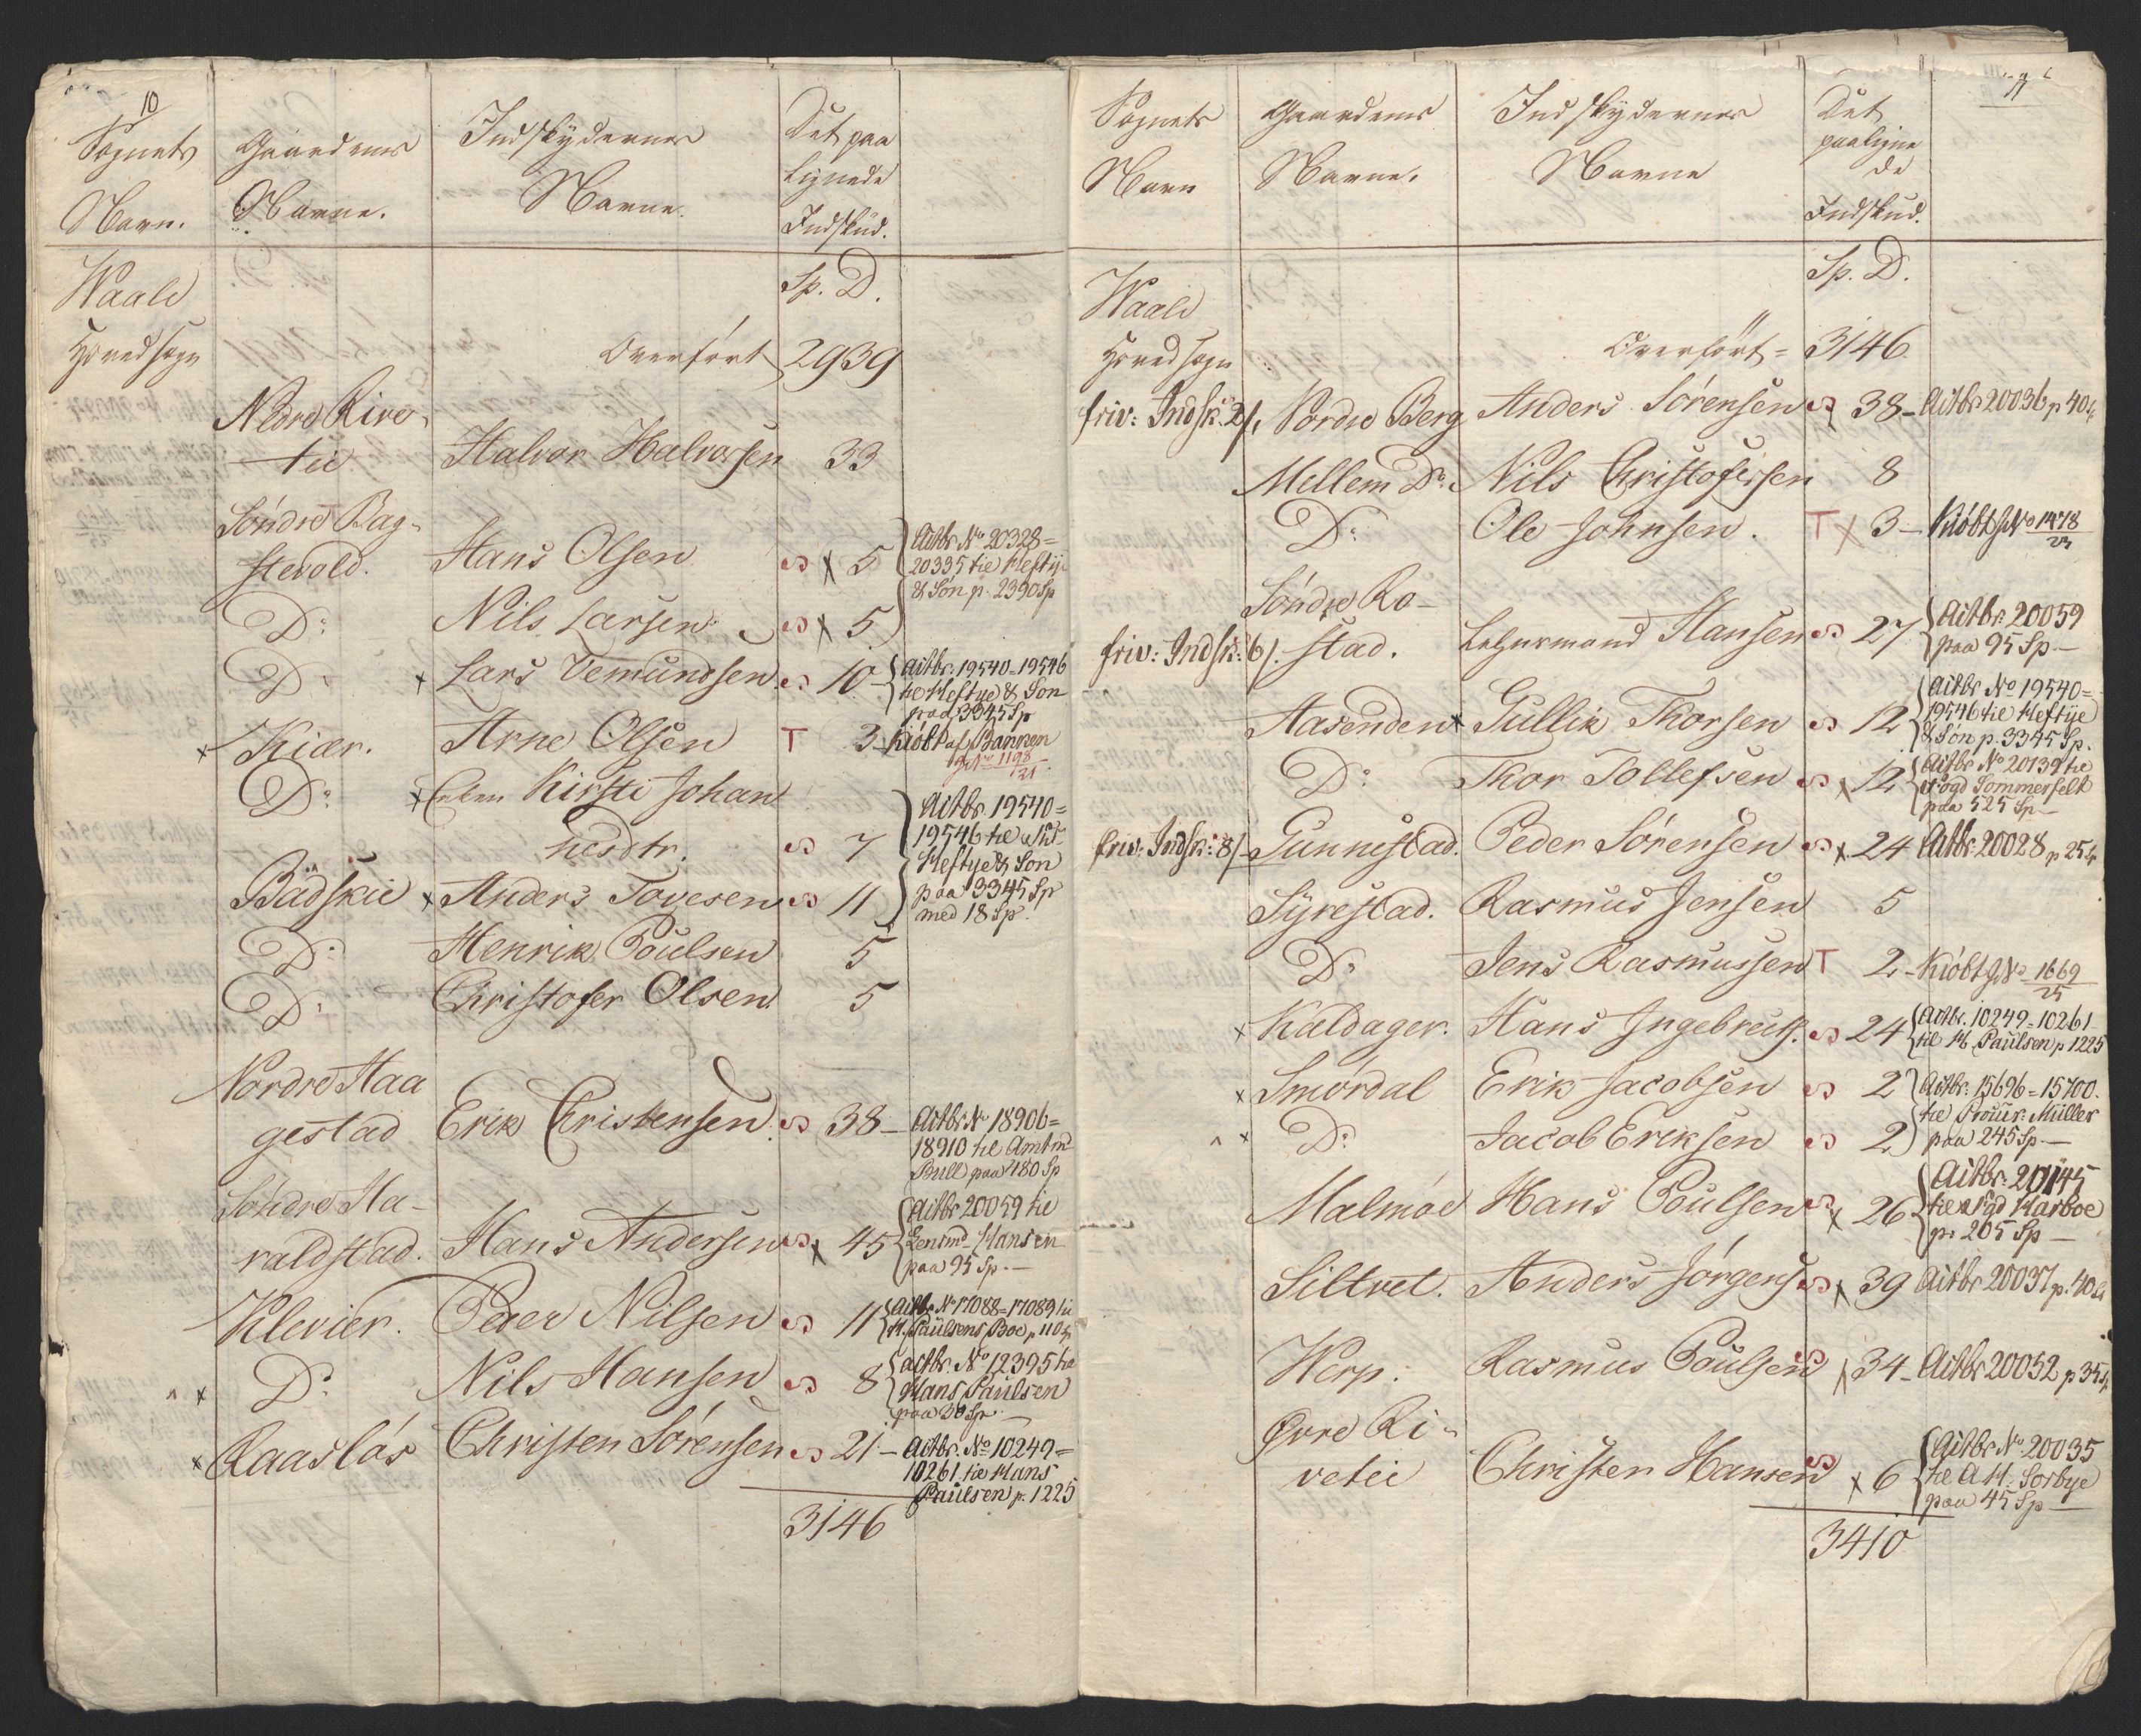 10
Sognets
Navn.
Gaardenes
Navne.
Indskydernes
Navne.
Det paa
lignede
Indskud.
Sp. D.
Waale
Hovedsogn
Overført 2939
Nedre Rive
tü Halvor Halvorsen 33
Söndre Bag-
stevold. Hans Olsen x 5 Actbr No 20328=
20335 til Heftÿe
& Sön p. 2390 Sp
Do Nils Larsen x 5
Do x Lars Vemundsen 10 Actbr. 19540=19546
til Heftye & Son
paa 3345 Sp
x Kiær. Arne Olsen T 3 Kiöbt af Banken
No 1198
25
Do x Enken Kirsti Johan
nesdtr. 7 Actbr. 19540=
19546 til
Heftye & Son
paa 3345 Sp
med 18 Sp.
Bådskie x Anders Tovesen 11
Do Henrik Poulsen 5
Do Christofer Olsen 5
Nordre Haa
gestad Erik Christensen 38 – Actbr No 18906=
18910 til Amtm
Bull paa 180 Sp
Söndre Ha-
raldstad. Hans Andersen x 45 Actbr 20059 til
Lensmd Hansen
paa 95 Sp. –
Klevier. Peder Nilsen 11 Actbr. No 17088=17089 til
H. Paülsens Boe p 110 Sp
x Do Nils Hansen 8 Actbr. No 12395 til
Hans Paulsen
paa 30 Sp. –
x Raaslös Christen Sörensen 21 – Actbr. No 10249=
10261 til Hans
Paülsen p. 1225
3146
11
Sognets
Navn
Gaardenes
Navne.
Indskydernes
Navne
Det
paaligne
de
Indskud.
Sp. D.
Waale
Hovedsogn
Overført = 3146
friv: Indsk: 2/. Nordre Berg Anders Sörensen 38 – Actbr 20036 p 40 Sp
Mellem Do. Nils Christofersen 8
Do Ole Johnsen. T x 3 – Kiöbt No 1478
25
Söndre Ro-
friv: Indsk: 6/. stad. Lehnsmand Hansen 27 Actbr. 20059
paa 95 Sp –
Aasenden x Gullik Thorsen 12 Actbr No 19540=
19546 til Heftÿe
& Sön p. 3345 Sp.
Do Thor Tollefsen x 12 Actbr No 20139 til
Fogd Sommerfelt
paa 525 Sp –
friv: Indsk: 8/. Gunnestad. Peder Sörensen x 24 Actbr. 20028 p 25 Sp
Syrestad. Rasmus Jensen 5
Do Jens Rasmussen T 2 – Kiöbt No 1669
25
x Kaldager. Hans Ingebretss. 24 Actbr. 10249=10261
til H. Paülsen p 1225
x Smördal Erik Jacobsen 2 Actbr. 15696=15700.
til Procür. Müller
paa 245 Sp –
x Do Jacob Eriksen 2
Malmöe Hans Poulsen x 26 Actbr. 20145
til Fgd Harboe
p. 205 Sp –
Siltvet. Anders Jörgens x 39 Actbr 20037 p. 40 Sp
Werp. Rasmus Poulsen x 34 – Actbr 20052 p 35 Sp
Øvre Ri-
vetü Christen Hansen x 6 Actbr No 20035
til A H. Sorbye
paa 45 Sp –
3410